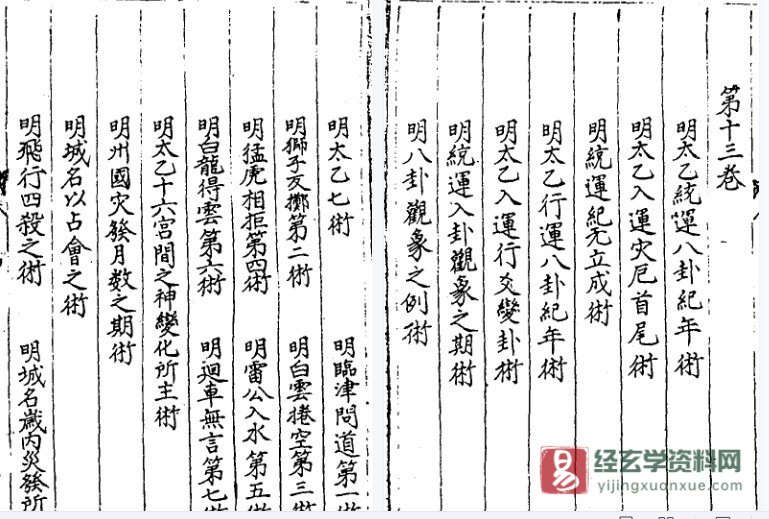 第十三卷
明太乙統運八卦紀年術
明太乙入運灾厄首尾術
明統運紀元立成術
明太乙行運八卦紀年術
明太乙入運行爻變卦術
明統運入卦觀象之期術
明八卦觀象之例術
明太乙七術
明臨津問道第一術
明獅子反擲第二術
明白雲捲空第三術
明猛虎相拒第四術
明雷公入水第五術
明白龍得雲第六術
明迴車無言第七術
明太乙十六宮間之神變化所主術
明州國灾發月数之期術
明城名以占會之術
明飛行四殺之術
明城名歲內災發所
经玄学资料网
yijingxuanxue.com
易